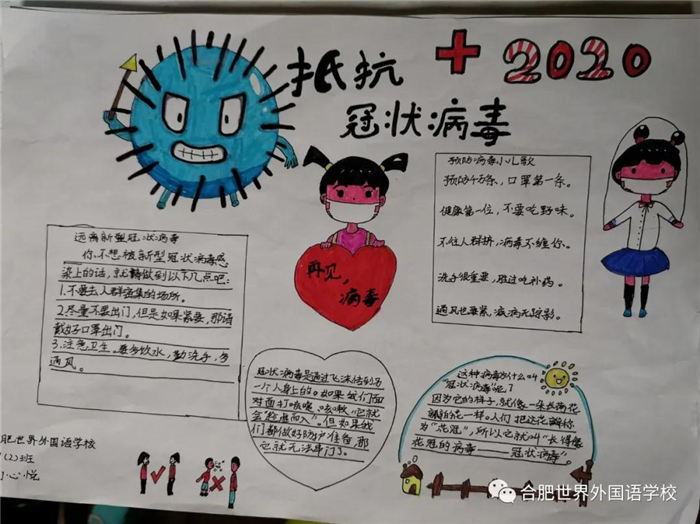 抵抗
+2020
冠状病毒
远离新型冠状病毒
你不想被新型冠状病毒感
染上的话,就请做到以下几点吧:
1.不要去人群密集的场所。
2.尽量不要出门,但是如果紧要,那请
戴好口罩出门。
3.注意卫生。要多饮水,勤洗手,多
通风。
再见,
病毒
预防病毒小儿歌
预防千万条,口罩第一条。
健康第一位,不要吃野味。
不往人群挤,病毒不缠你。
洗手很重要,胜过吃补药。
通风也要紧,
冠状病毒是通过飞沫传的
一个人身上的。如果我们面
对面打咳嗽、
会
们都做好防护准备,那
它就无法串门了。
这种病毒为什么叫
“冠状病毒”呢?
因为它的样子,就像一朵
一样。人们把这花瓣称
为“花冠”,所以它就叫“长得像
花冠的病毒——冠状病毒”。
肥世界外国语学校
(2)班
心悦
合肥世界外国语学校